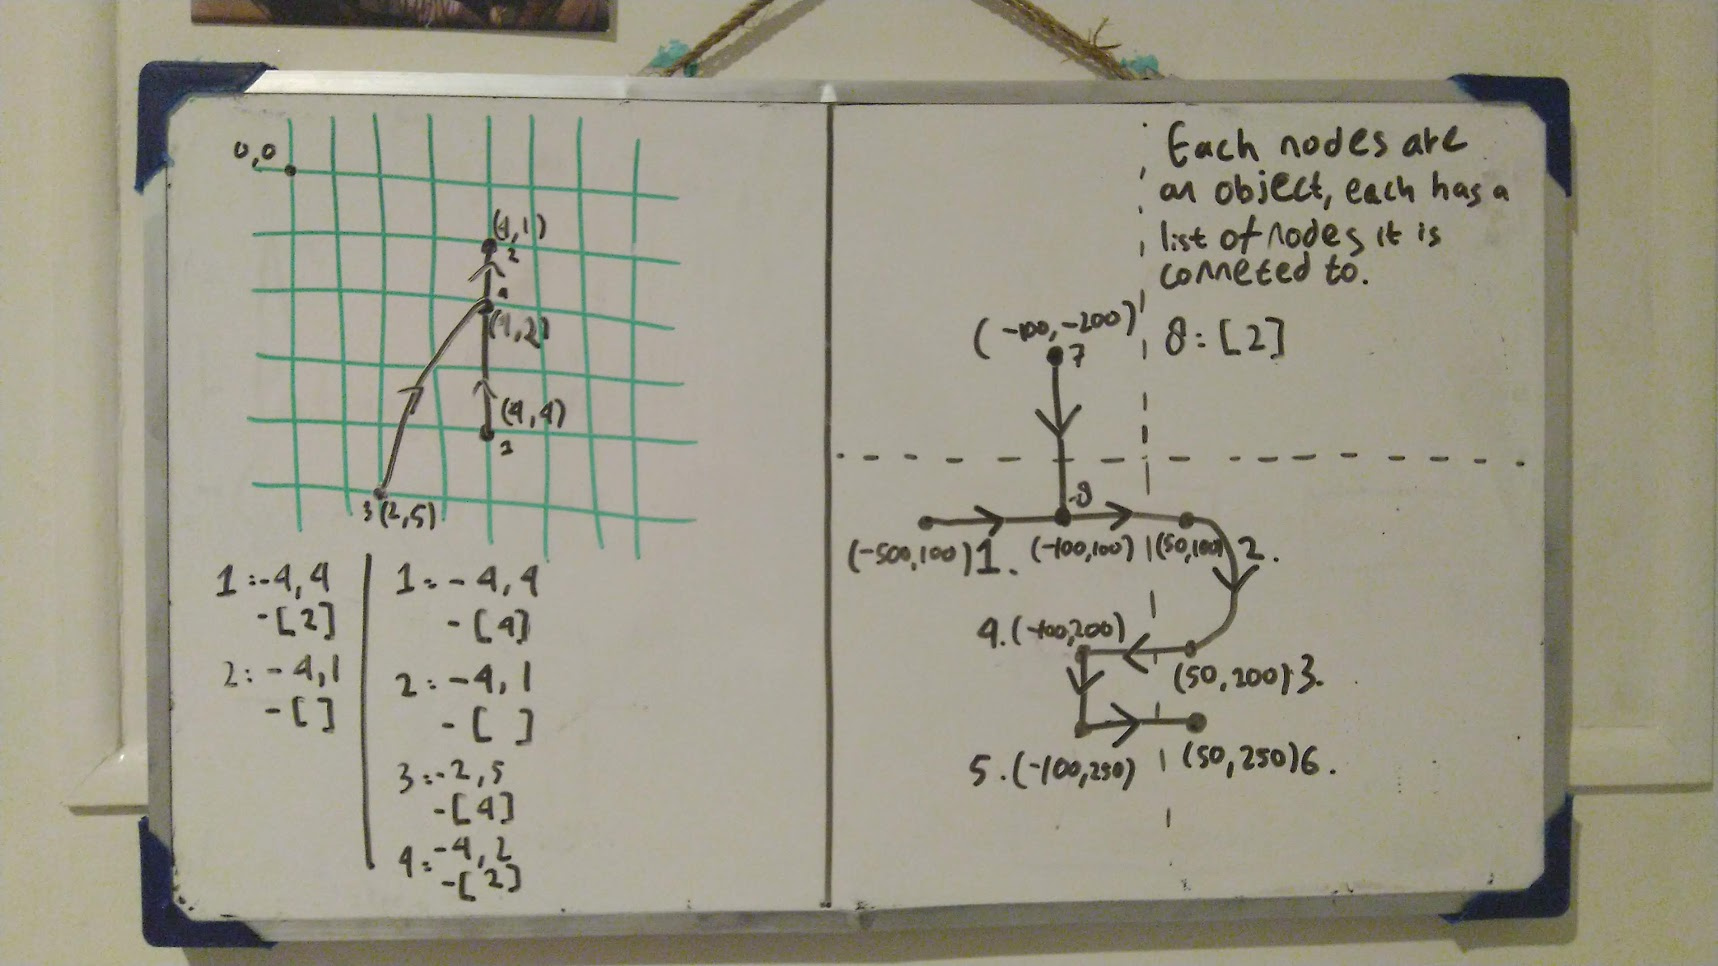 0,0
(4,1)
2
4
(4,2)
(4,4)
3(2,5)
1:-4,4
-[2]
2:-4,1
-[ ]
1:-4,4
-[4]
2:-4,1
-[ ]
3:-2,5
-[4]
4:-4,2
-[2]
Each nodes are
an object, each has a
list of nodes it is
conneted to.
8:[2]
(-100,-200)
7
8
(-500,100)1.
(-100,100)
(50,100)2.
4.(-100,200)
(50,200)3.
5.(-100,250)
(50,250)6.